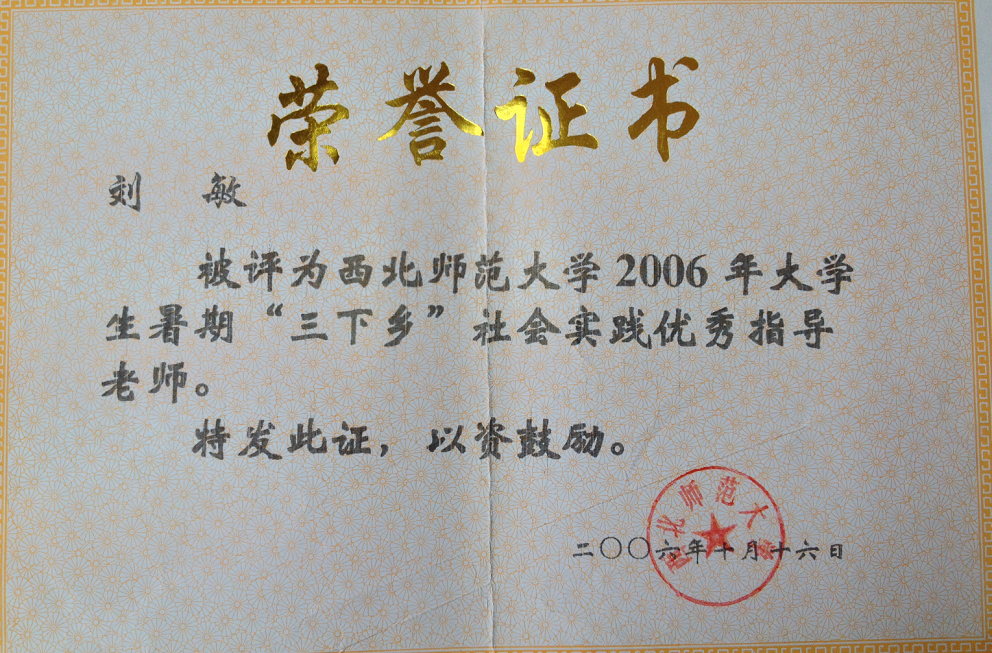 荣誉证书
刘 敏
被评为西北师范大学2006年大学
生暑期“三下乡”社会实践优秀指导
老师。
特发此证，以资鼓励。
西北师范大学
二〇〇六年十月十六日